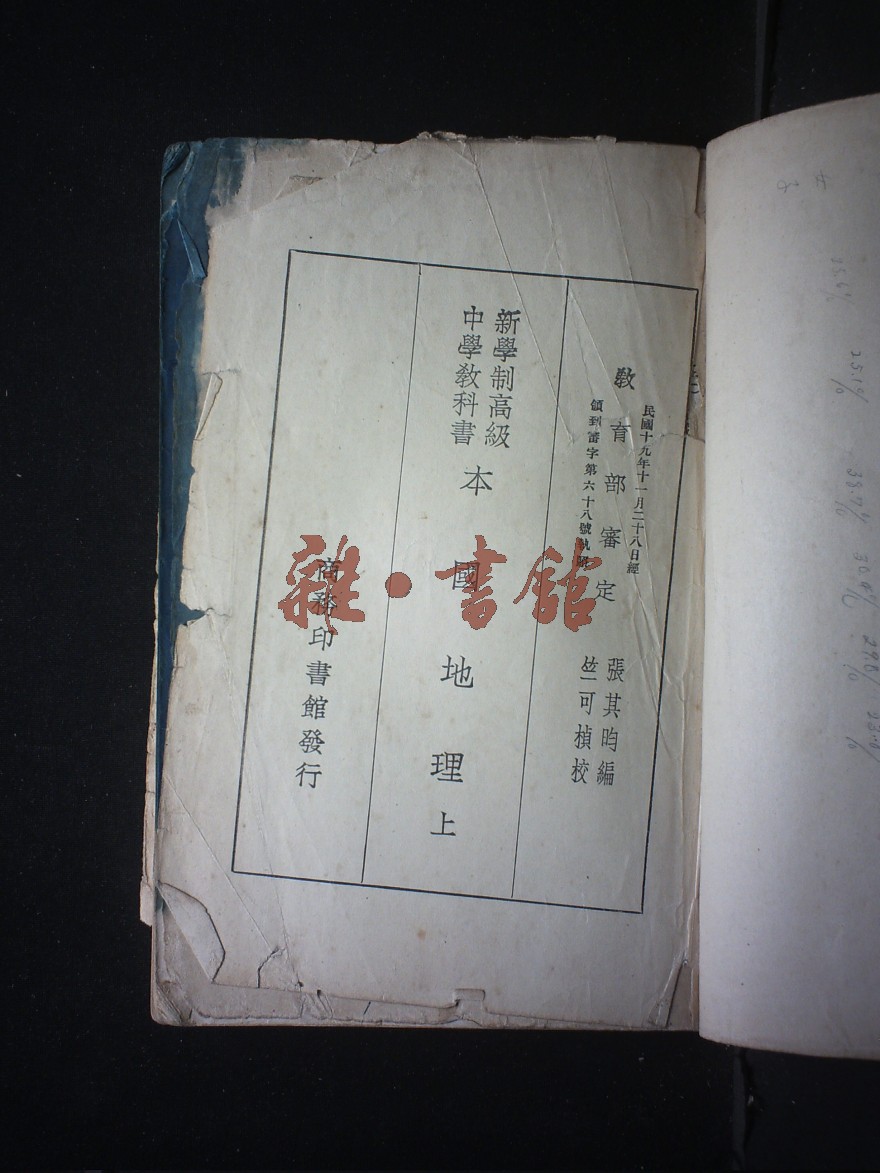 教育部審定
民國十九年十一月二十八日經
領到審字第六十八號執照
張其昀編
竺可楨校
新學制高級
中學教科書
本國地理上
商務印書館發行
雜·書館
25.1%